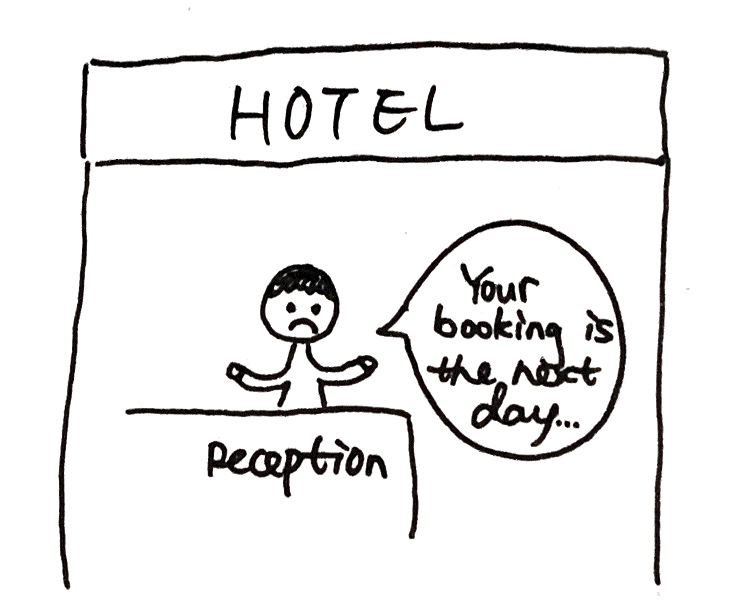 HOTEL
Your
booking is
the next
day...
Reception